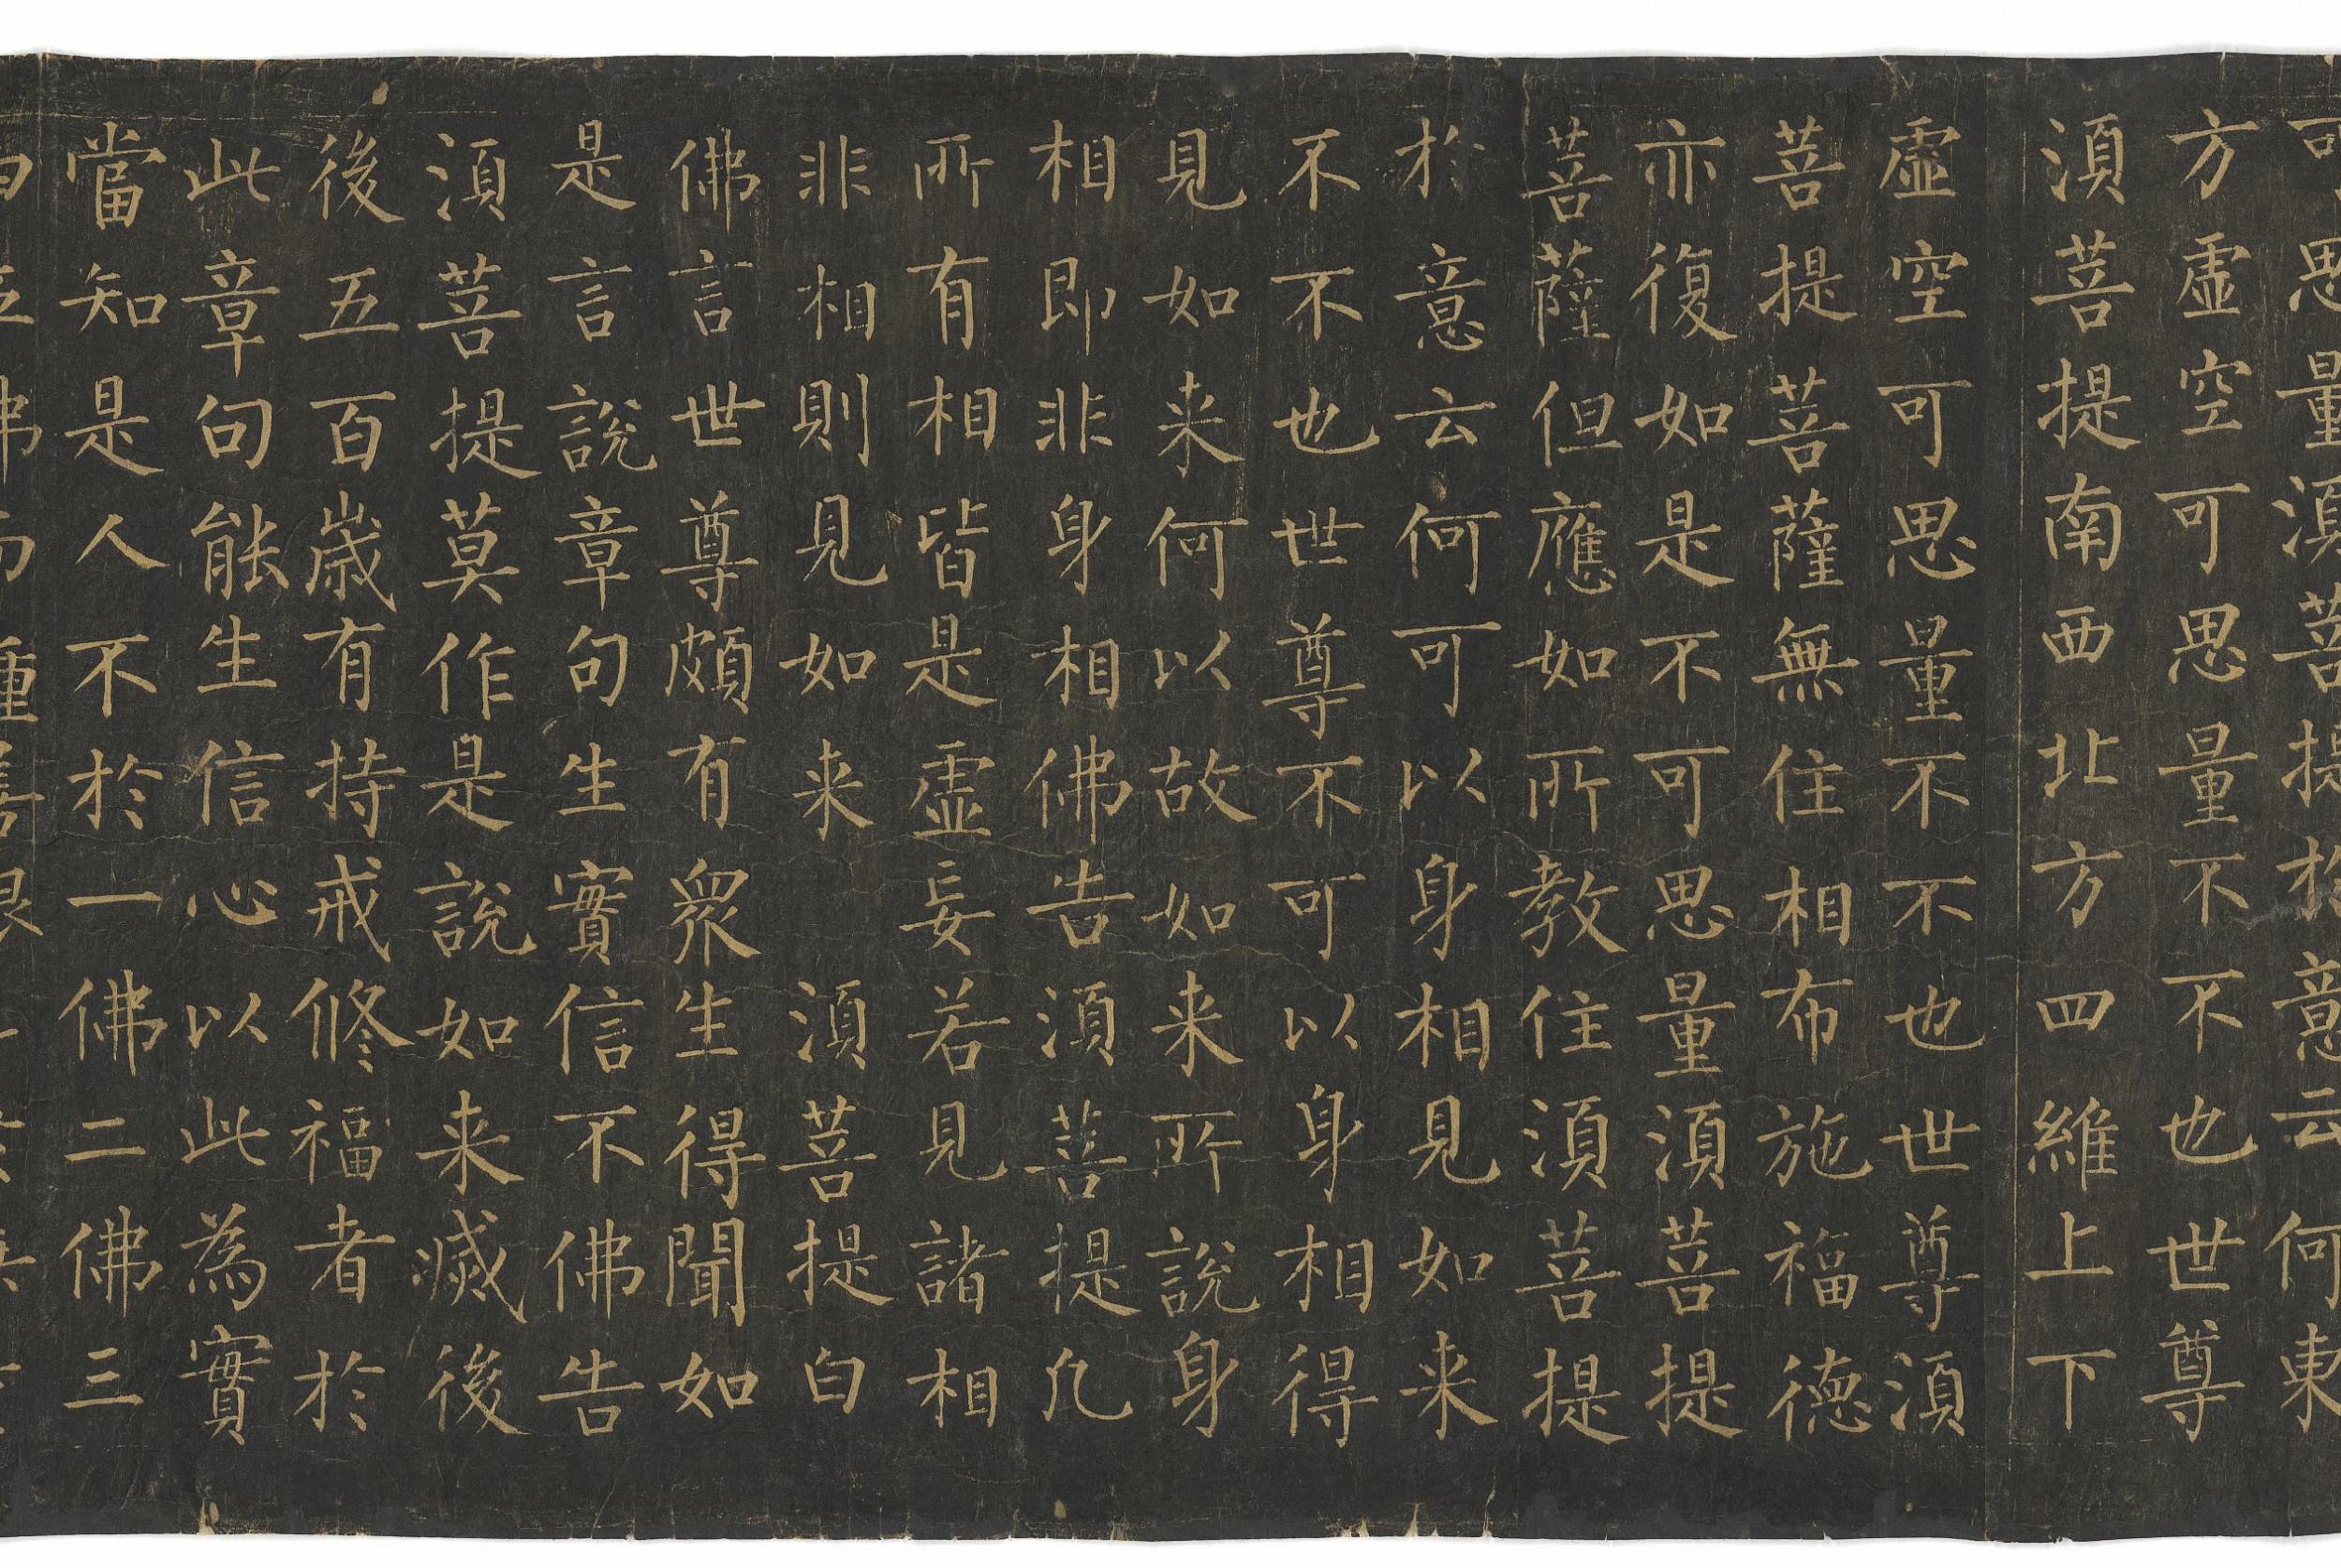 可思量須菩提於意云何東
方虛空可思量不不也世尊
須菩提南西北方四維上下
虛空可思量不不也世尊須
菩提菩薩無住相布施福德
亦復如是不可思量須菩提
菩薩但應如所教住須菩提
於意云何可以身相見如来
不不也世尊不可以身相得
見如来何以故如来所說身
相即非身相佛告須菩提凡
所有相皆是虛妄若見諸相
非相則見如来 須菩提白
佛言世尊頗有衆生得聞如
是言說章句生實信不佛告
須菩提莫作是說如来滅後
後五百歲有持戒修福者於
此章句能生信心以此為實
當知是人不於一佛二佛三